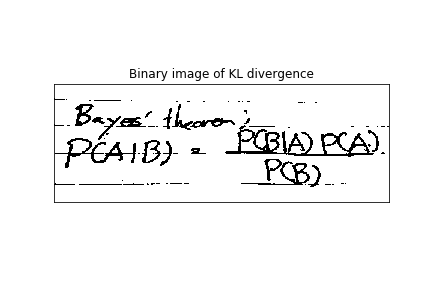 Binary image of KL divergence
Bayes' theorem;
P(A|B) = P(B|A) P(A)
P(B)